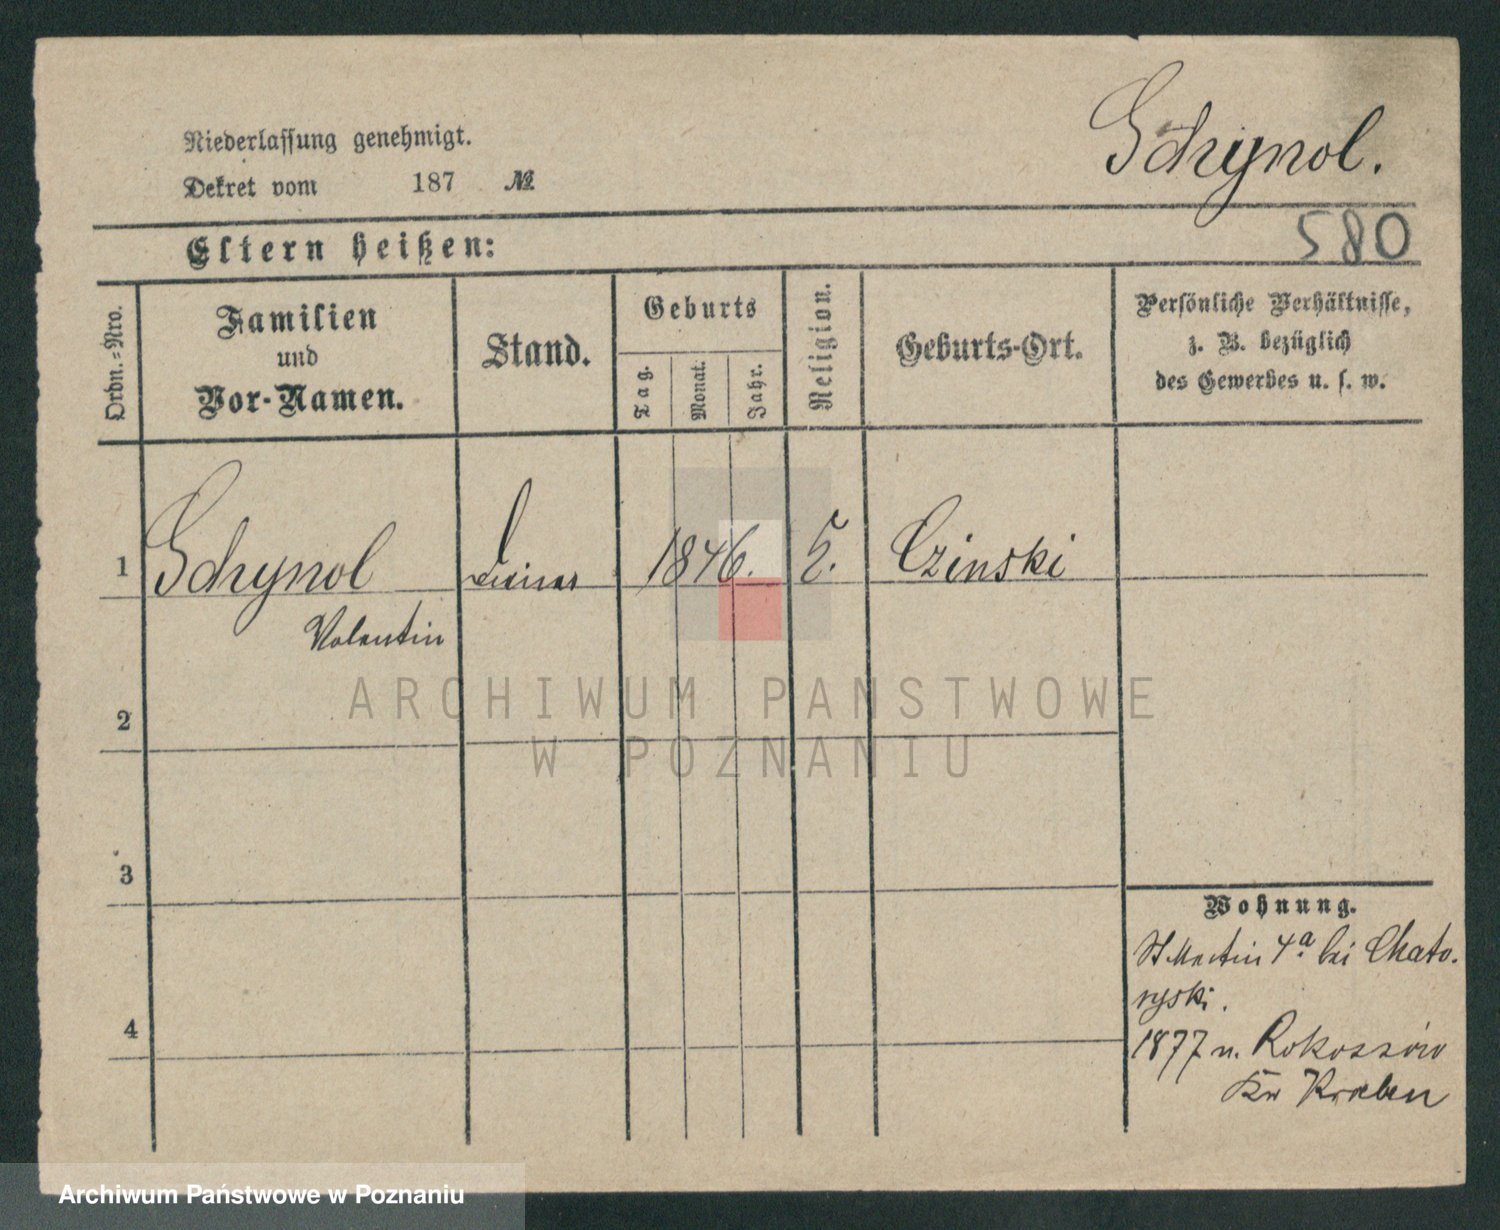 Niederlassung genehmigt.
Dekret vom 187 №
Schynol.
580
Eltern heißen:
Ordn.-Nro.
Familien
und
Vor-Namen.
Stand.
Geburts
Tag.
Monat.
Jahr.
Religion.
Geburts-Ort.
Persönliche Verhältnisse,
z. B. bezüglich
des Gewerbes u. s. w.
1 Schynol 1846. Czinski
Valentin
ARCHIWUM PANSTWOWE
W POZNANIU
2
3
4
Wohnung.
St Martin 4a bei Chato-
ryski.
1877 n. Rokossowo
Kr Kroeben
Archiwum Państwowe w Poznaniu